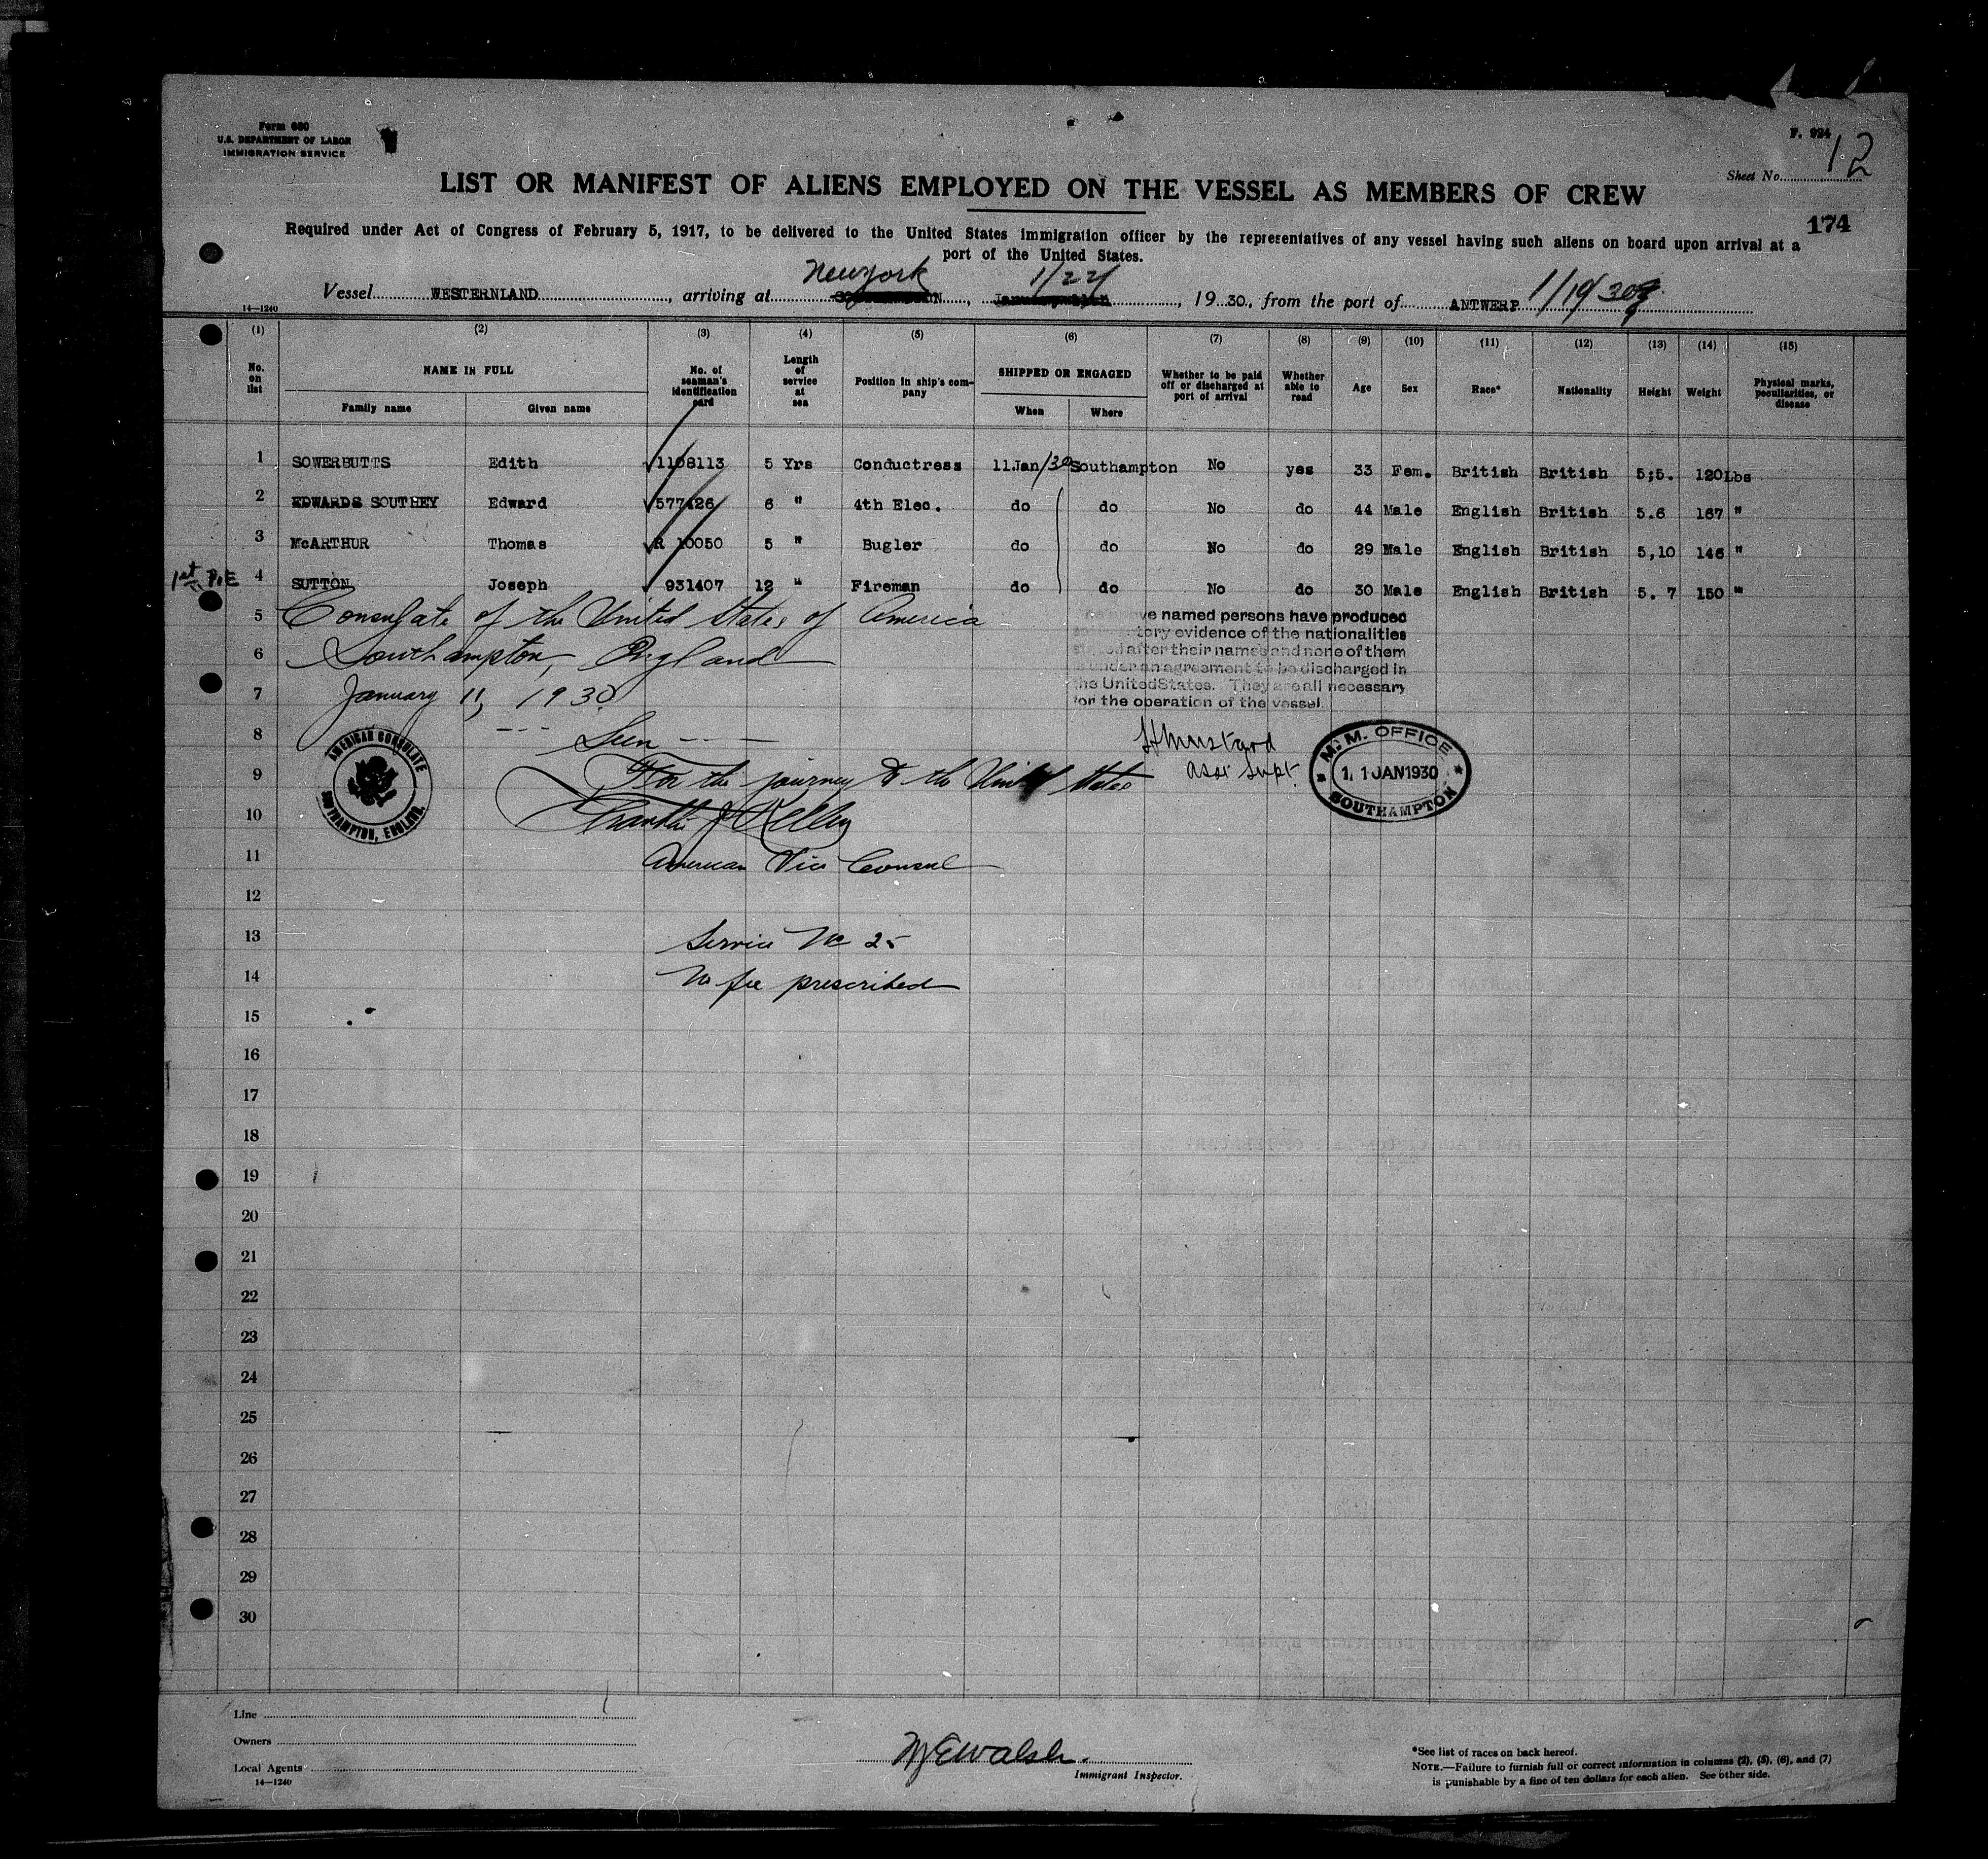 Form 680
U.S. DEPARTMENT OF LABOR
IMMIGRATION SERVICE
F. 924
Sheet No. 12
LIST OR MANIFEST OF ALIENS EMPLOYED ON THE VESSEL AS MEMBERS OF CREW
174
Required under Act of Congress of February 5, 1917, to be delivered to the United States immigration officer by the representatives of any vessel having such aliens on board upon arrival at a
port of the United States.
Vessel WESTERNLAND, arriving at New York, 1/22, 1930, from the port of ANTWERP 1/10/30
14—1240
(1) (2) (3) (4) (5) (6) (7) (8) (9) (10) (11) (12) (13) (14) (15)
No. on list NAME IN FULL Family name Given name No. of seaman's identification card Length of service at sea Position in ship's company SHIPPED OR ENGAGED When Where Whether to be paid off or discharged at port of arrival Whether able to read Age Sex Race* Nationality Height Weight Physical marks, peculiarities, or disease
1 SOWERBUTTS Edith 1108113 5 Yrs Conductress 11Jan/30 Southampton No yes 33 Fem. British British 5;5. 120Lbs
2 EDWARDS SOUTHEY Edward 577426 6 " 4th Elec. do do No do 44 Male English British 5.6 167 "
3 McARTHUR Thomas R 10050 5 " Bugler do do No do 29 Male English British 5,10 146 "
1st 4 SUTTON Joseph 931407 12 " Fireman do do No do 30 Male English British 5. 7 150 "
5 Consulate of the United States of America
6 Southampton, England
7 January 11, 1930
ve named persons have produced
tory evidence of the nationalities
after their names and none of them
under an agreement to be discharged in
the United States. They are all necessary
for the operation of the vessel.
8 Seen
9 For the journey to the United States
10 Franklin J Kelley
11 American Vice Consul
AMERICAN CONSULATE
SOUTHAMPTON, ENGLAND.
Mustard
Asst Supt
M. M. OFFICE
11 JAN 1930
SOUTHAMPTON
12
13 Service No 25
14 No fee prescribed
15
16
17
18
19
20
21
22
23
24
25
26
27
28
29
30
Line
Owners
Local Agents
14—1240
Walsh.
Immigrant Inspector.
*See list of races on back hereof.
NOTE.—Failure to furnish full or correct information in columns (2), (5), (6), and (7)
is punishable by a fine of ten dollars for each alien. See other side.